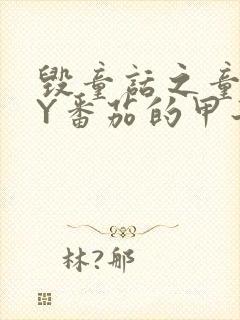 毁童话之童
Y番茄的甲
林?郍